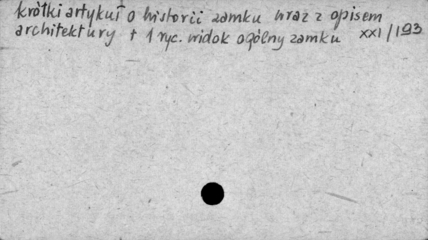 krótki artykuł o historii zamku wraz z opisem
architektury + 1 ryc. widok ogólny zamku XXI/193